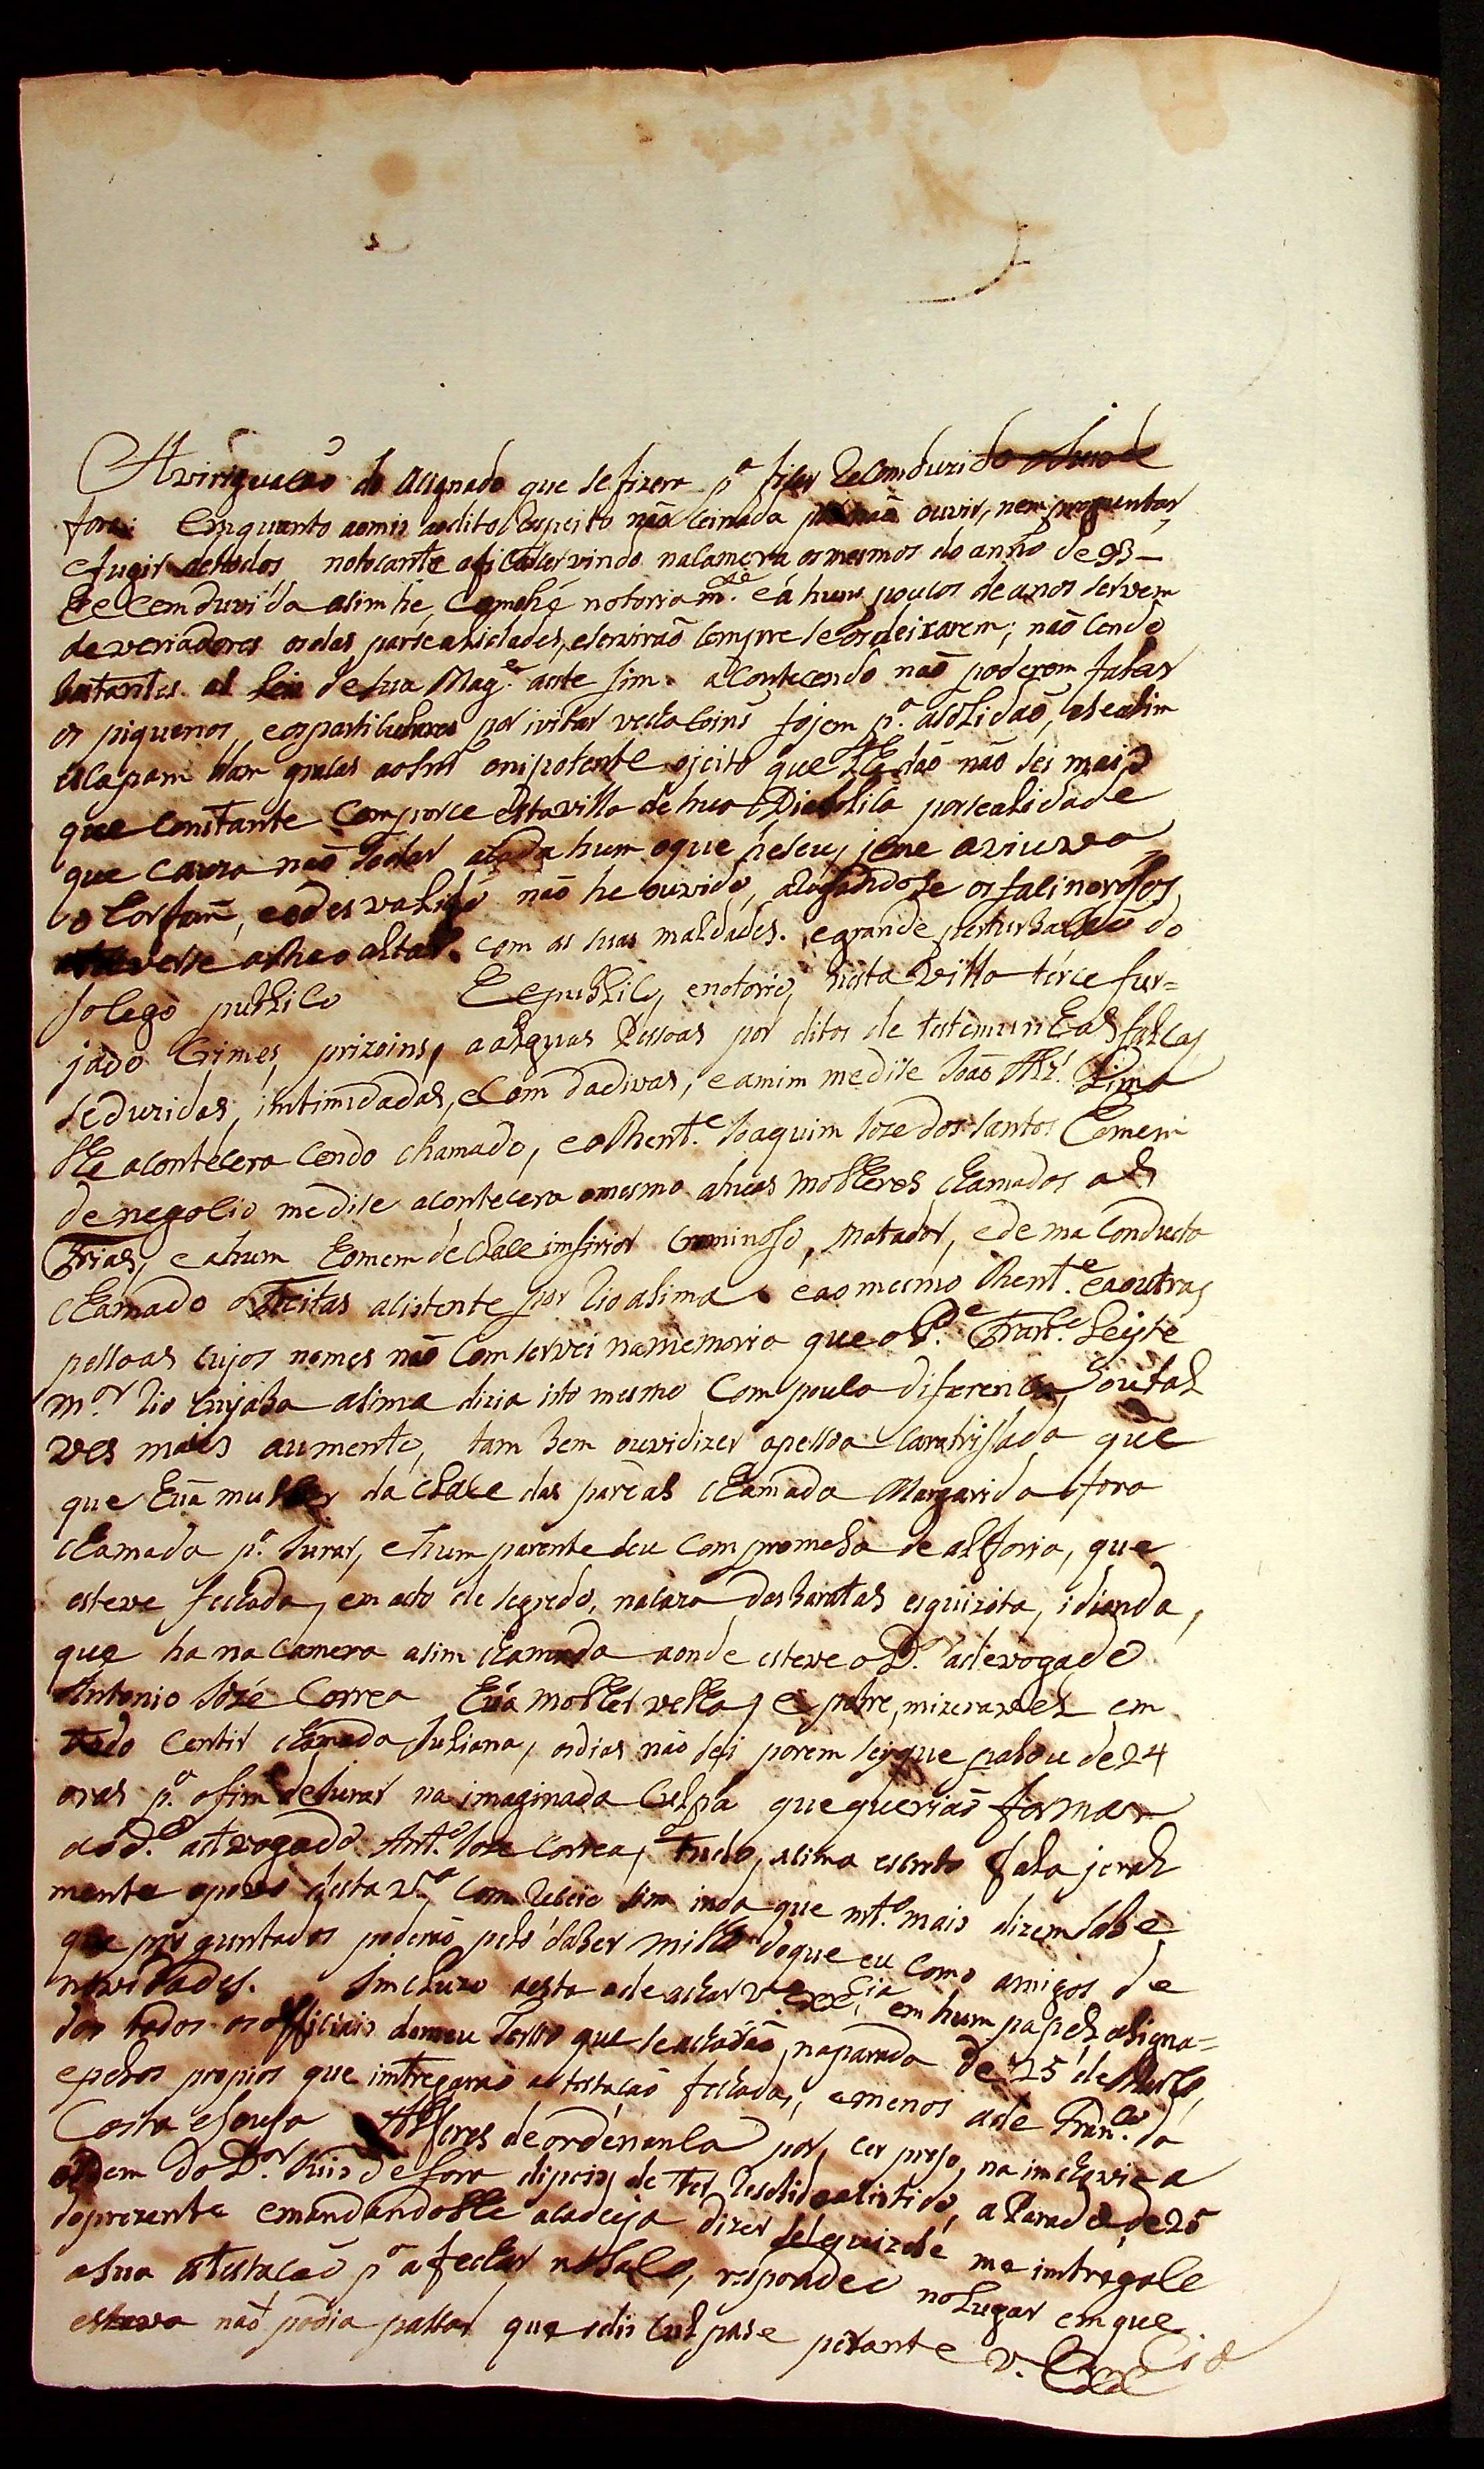 Aviriguacaõ do acunado que se fizera p.ª ficar Reconduzido o Juis de
fora: Emquanto aomis aodito Respeito não sei nada não ouvir, nem preguntar,
e fugir de todos notocante a ficar servindo nacamera os mesmos do anno de 93_
he cemduvida asim he, comohé notoriam.te e á huns poucos de anos servem
de veriadores os das parsealidades, e servirão sempre se os deixarem; não sendo
bastantes as Leis de sua Mag.e ante sim. acontecendo não poderem falar
os piquenos, e os partiículares por ivitar vechacoins fojem p.ª asolidaõ, e se asim
escapam dam gracas aoSnr onipotente, ojeito que lhe dão não sei mais
que constante comporce esta villa de hua Diabolica parsealidade
que cauza não se dar acada hum oque hé seu, jeme a viuva
o Corfam, e o desvalido não he ouvido, alogandose os facinorosos
com as suas maldades. e grande perturbacão do
socego publico He publico, e notorio, nesta Villa terce fur=
jado Crimes, prizoins, a alguas Pessoas por ditos de testemunhas falcas
seduzidas, intimidadas, e com dadivas, e amim medise João Alz.' Lima
lhe acontecera cendo chamado, e oThent.e Joaquim Joze dos santos homem
de negocio medise acontecera omesmo ahuas molheres chamados as
Frias, e ahum homem de clace imfirior Criminoso, matador, e de ma conducta
chamado o Freitas asistente por rio asima e ao mesmo Thent.e e aoutras
pessoas cujos nomes não comservei namemoria que o P.e Fran.co Leyte
m.or rio Cuyaba asima dizia isto mesmo com pouca diferenca, ou tal
ves mais aumento, tam bem ouvi dizer apessoa que
que huã mulher da clace das parcas chamada Margarida fora
chamada p.ª Jurar, e hum parente seu com promesa de alforia, que
esteve fechada, em acto de segredo, nacaza das baratas esquizita, idionda,
que ha na camera asim chamada aonde esteve o D.or adevogado
Antonio José Correa huã molher velha, e pobre, mizeravel em
tudo centir chamada Juliana, os dias não sei porem sei que pasou de 24
oras p.ª ofim de Jurar na imaginada Culpa que queriaõ formar
ao D.or advogado Ant.o Joze Correa, Tudo, asima escrito fala jeral
mente opovo desta V.ª com receio sim inda que mt.o mais dizem sabe
que preguntados poderaõ pelo saber milhor doque eu como amigos de
novidades. Imcluzo nesta ade achar V. Exx.cia em hum papel asigna=
dos todos os officiais domeu Terço que seacharaõ, naparada de 25 de Marco,
e pelos propios que imtregaraõ atestacaõ fechada, e menos ade Fran.co da
Costa e souza Alferes de ordenanca por, cer prezo, na imchovia a
ordem do D.or Juis de fora dipois, de ter Recolido asistido, a Parada, de 25
doprezente e mandandolhe acadeja dizer selequizese me imtregace
a sua atestacaõ p.ª a fechar noSaco, respondeo no Lugar emque
estava não podia passar que odis culpase perante V. Exx.cia